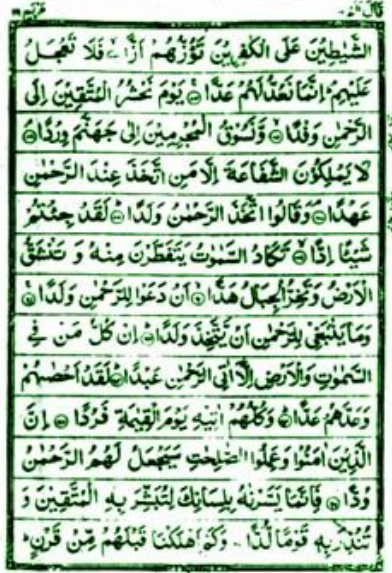 قال الم ١٦
مريم ١٩
الشَّيٰطِيْنَ عَلَى الْكٰفِرِيْنَ تَؤُزُّهُمْ اَزًّا ۙ فَلَا تَعْجَلْ
عَلَيْهِمْ ؕ اِنَّمَا نَعُدُّ لَهُمْ عَدًّا ۚ يَوْمَ نَحْشُرُ الْمُتَّقِيْنَ اِلَى
الرَّحْمٰنِ وَفْدًا ۙ وَّنَسُوْقُ الْمُجْرِمِيْنَ اِلٰى جَهَنَّمَ وِرْدًا ۘ
لَا يَمْلِكُوْنَ الشَّفَاعَةَ اِلَّا مَنِ اتَّخَذَ عِنْدَ الرَّحْمٰنِ
عَهْدًا ۘ وَقَالُوا اتَّخَذَ الرَّحْمٰنُ وَلَدًا ؕ لَقَدْ جِئْتُمْ
شَيْـًٔا اِدًّا ۙ تَكَادُ السَّمٰوٰتُ يَتَفَطَّرْنَ مِنْهُ وَ تَنْشَقُّ
الْاَرْضُ وَتَخِرُّ الْجِبَالُ هَدًّا ۙ اَنْ دَعَوْا لِلرَّحْمٰنِ وَلَدًا ۚ
وَمَا يَنْۢبَغِيْ لِلرَّحْمٰنِ اَنْ يَّتَّخِذَ وَلَدًا ؕ اِنْ كُلُّ مَنْ فِي
السَّمٰوٰتِ وَالْاَرْضِ اِلَّاۤ اٰتِي الرَّحْمٰنِ عَبْدًا ؕ لَقَدْ اَحْصٰىهُمْ
وَعَدَّهُمْ عَدًّا ؕ وَكُلُّهُمْ اٰتِيْهِ يَوْمَ الْقِيٰمَةِ فَرْدًا اِنَّ
الَّذِيْنَ اٰمَنُوْا وَعَمِلُوا الصّٰلِحٰتِ سَيَجْعَلُ لَهُمُ الرَّحْمٰنُ
وُدًّا فَاِنَّمَا يَسَّرْنٰهُ بِلِسَانِكَ لِتُبَشِّرَ بِهِ الْمُتَّقِيْنَ وَ
تُنْذِرَ بِهٖ قَوْمًا لُّدًّا وَكَمْ اَهْلَكْنَا قَبْلَهُمْ مِّنْ قَرْنٍ ؕ